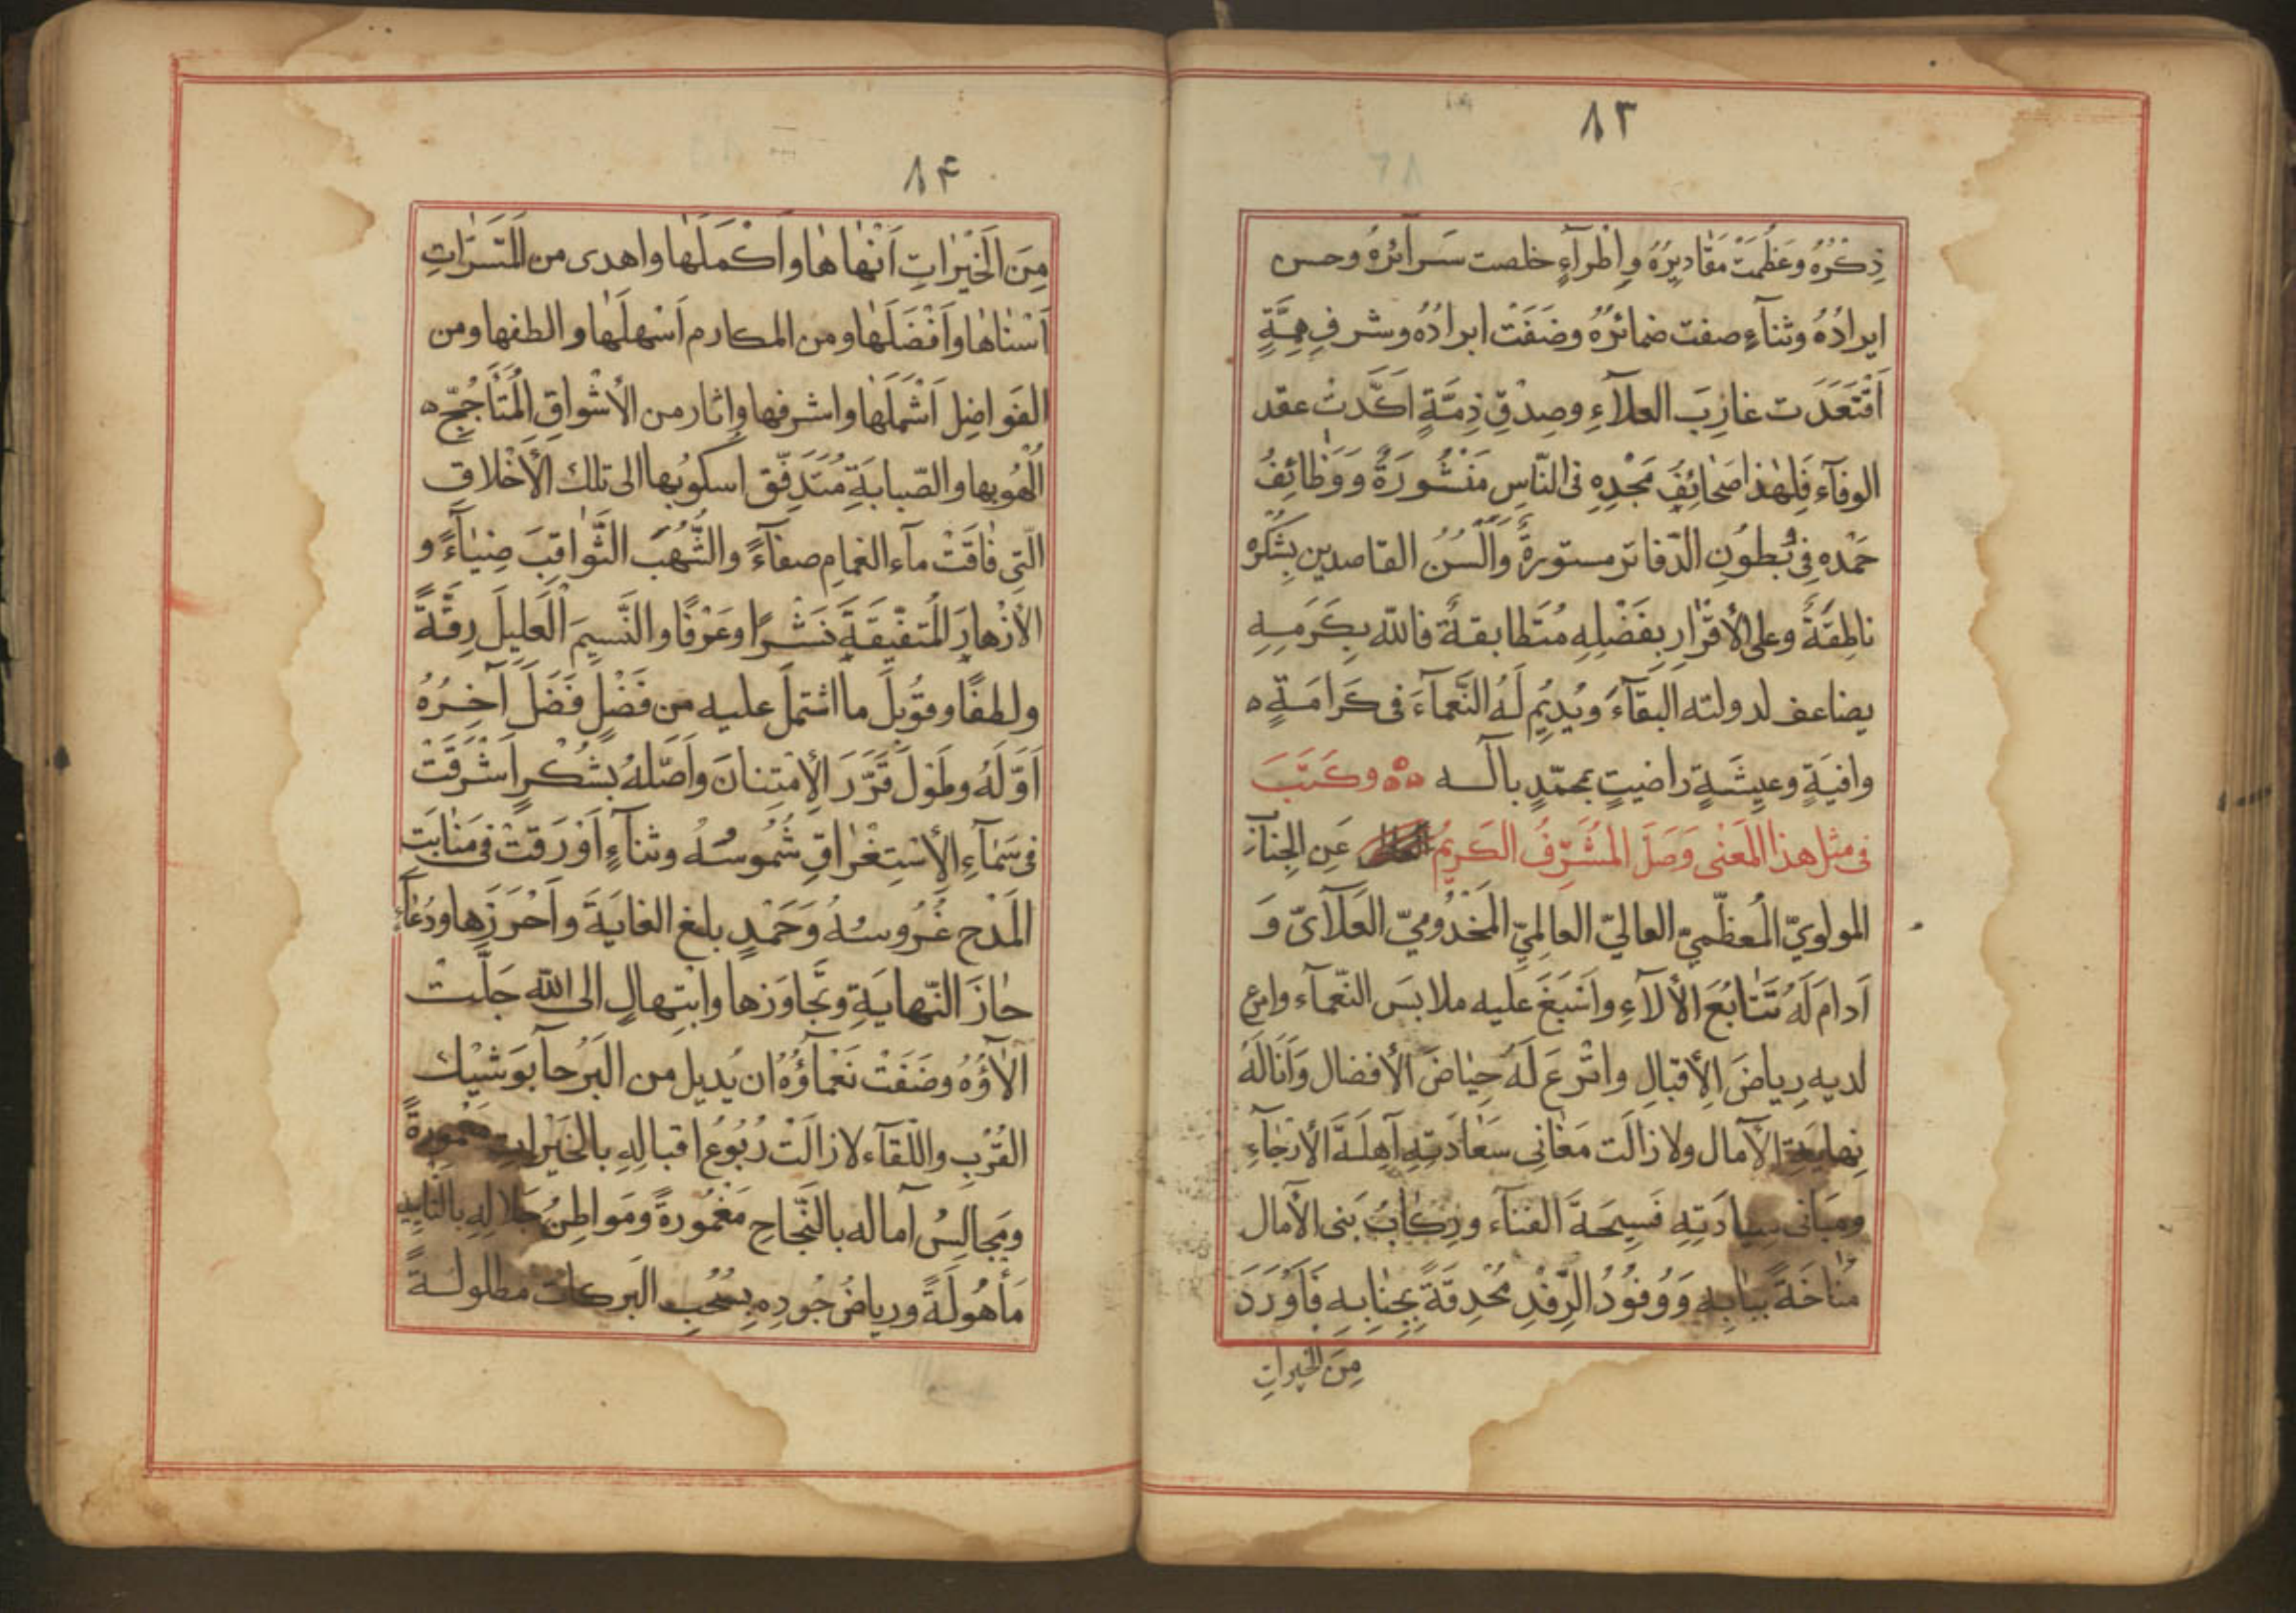 ٨٣
ذِكْرُهُ وَعَظُمَتْ مَقَاديرُهُ وِاطْرآءٍ خلصت سَرآئرُهُ وحسن
ايرادُهُ وثنآءٍ صفت ضمائرُهُ وضَفَتْ ابرادُه وشرفِ هِمَّةٍ
اقْتَعَدَت غارِبَ العلآءِ وصِدْقِ ذِمَّةٍ اَكَّدتْ عقد
الوفآء فَلِهٰذا صَحٰائِفُ مَجْدِهِ فى النّاسِ مَنْشُورَةٌ وَوَظٰائِفُ
حَمْدِه فِى بُطوُنِ الدّفاتر مستورةٌ وَاَلْسُنُ القاصدين بِشُكْرِه
ناطِقَةٌ وعلى الأقرٰارِ بِفَضْلِهِ مُتَطابقةٌ فالله بِكَرَمِهِ
يضاعف لدولته البَقآءَ ويُدِيُم لَهُ النَّعمآءَ فى كَرامَةٍ ه
وافيَةٍ وعيشَةٍ راضيتٍ بمحمّدٍ بآلـه ۵۵۵ وكَتَبَ
فى مثل هذا المَعنٰى وَصَلَ المُشَرِّفُ الكَريُم عَنِ الجِنابِ
المولويّ المُعظّميّ العاليّ العالِمِيّ المَخْدُوميّ العَلآئىّ وَ
اَدامَ لَهُ تَتٰابُعَ الألآءِ واَسْبَغَ عليه ملابسَ النّعمآء وامرع
لديه رِياضَ الأِقبالِ واتْرعَ لَهُ حِيٰاضَ الأفضال وَاَنَالَهُ
نِهايَةَ الآمال ولا زالَت مَغٰانِى سَعٰادَتِهِ آهِلَةَ الأرْجٰآءِ
ومَبَانى سِيادَتِهِ فَسِيحَةَ الفنآء ورِكابُ بَنى الآمال
مُناخَةً بِبٰابِهِ وَوُفوُدُ الرِّفْدِ مُحْدِقَةً بِجِنٰابِهِ فَاَوْرَدَ
مِنَ الخيراتِ
٨۴
مِنَ الَخْيْرٰاتِ اَنْهٰاهٰا واَكْمَلَهٰا واهدى من المَسَرّٰاتِ
اَسْنٰاهٰا واَفْضَلَهٰا ومن المكارم اَسْهلَهٰا والطفها ومن
الفَواضِلِ اَشْمَلَهٰا واشرفها واثار من الأشْواقِ المُتَأجِّج ه
اُلْهُوبها والصّبابَةِ مُتَدَفّق اسكوبُها الى تلك الأخْلاقِ
الّتى فٰاقَتْ مآء الغمامِ صفآءً والشُّهُبَ الثَّوٰاقِبَ ضِيٰآءً و
الأزْهارَ المُتَفَيِّقَةَ نَشْرًا وعَرْفًا والنَّسيَم العَليلَ رِقَّةً
ولطفًا وقوُبلَ ما اشتملَ عليه من فَضْلٍ فَضَلَ آخِرُهُ
اَوّلَهُ وطَوْلَ قَرَّرَ الأِمْتِنانَ واَصّلهُ بشُكْرٍ اَشْرَقَتْ
فى سَمٰآءِ الأِسْتِغْراقِ شُمُوسُهُ وثنآءٍ اَوْرَقتْ فى مَنٰابَت
المَدْح غُروسُهُ وَحَمْدٍ بلغ الغايَةَ واَحْرَزَها ودُعٰآءٍ
حٰازَ النّهايَةِ وتَجٰاوَزها وابْتِهالٍ الى الله جَلَّتْ
الآؤُهُ وضَفَتْ نَعْمآؤُهُ ان يُديل من البَرْحآ بوَشْيْك
القُرْبِ واللّقآء لا زالَتْ رُبُوعُ اقبالِهِ بالخَيْراتِ مَعْمُورةً
ومَجٰالِسُ آماله بالنَّجٰاحِ مَغْمُورةً ومَواطِنُ جَلالِهِ بالتّأييدِ
مَأهُولَةً ورياضُ جُودِهِ بِسُحُبِ البَركات مطلولـةً